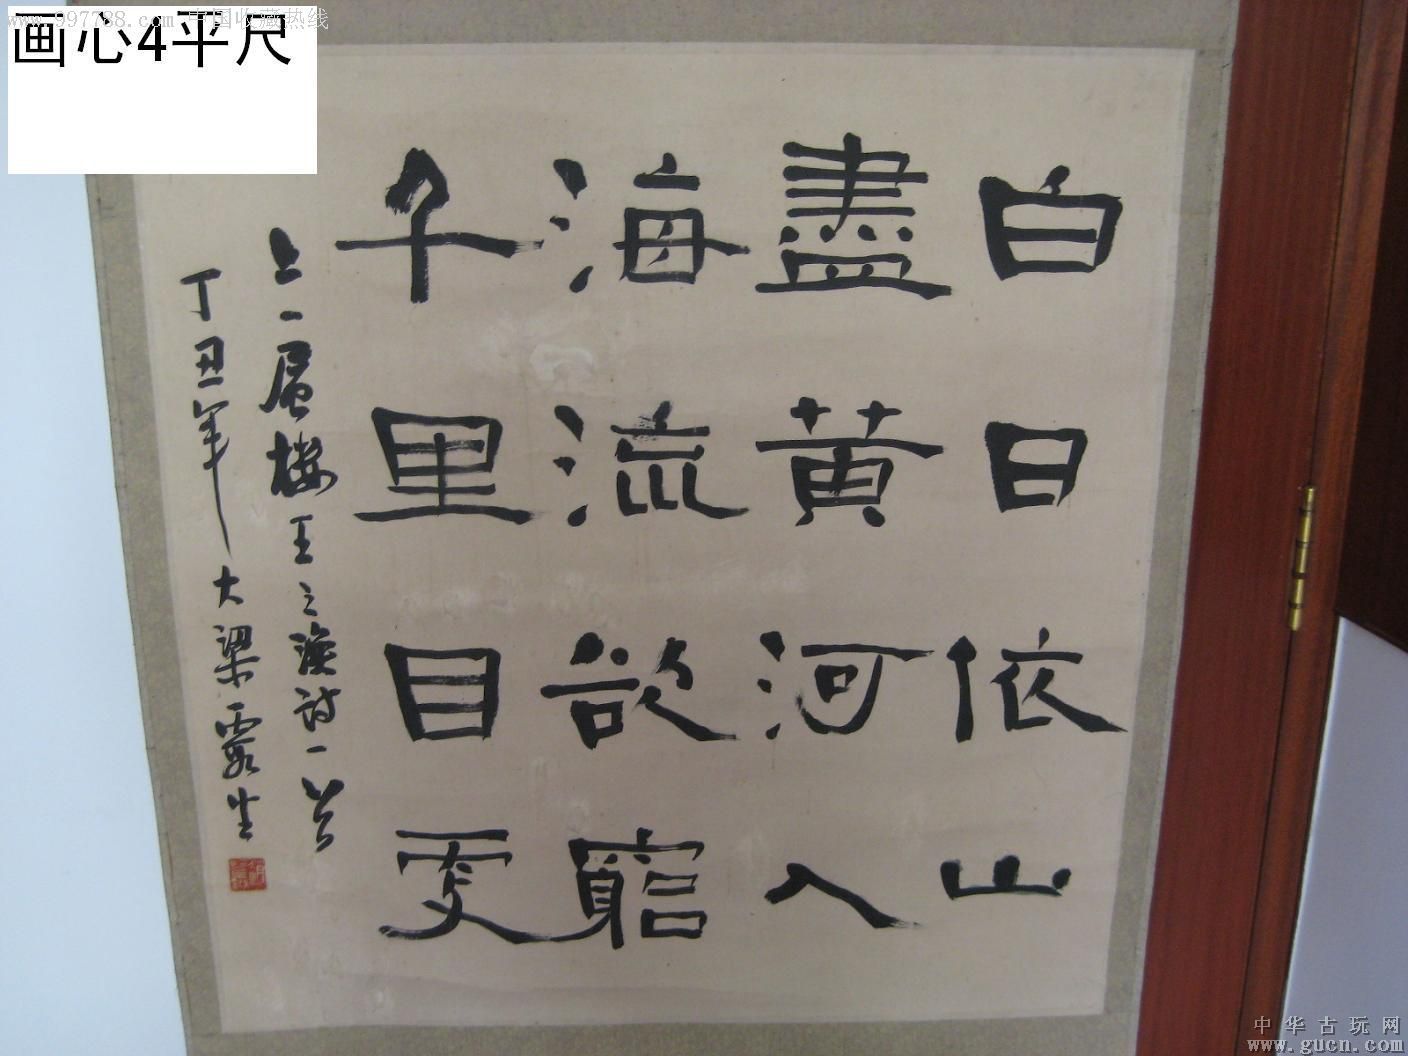 www.997788.com 中国收藏热线
画心4平尺
白日依山
盡黄河入
海流欲窮
千里目更
上一層楼王之渙詩一首
丁丑年大梁霞生
中华古玩网
www.gucn.com